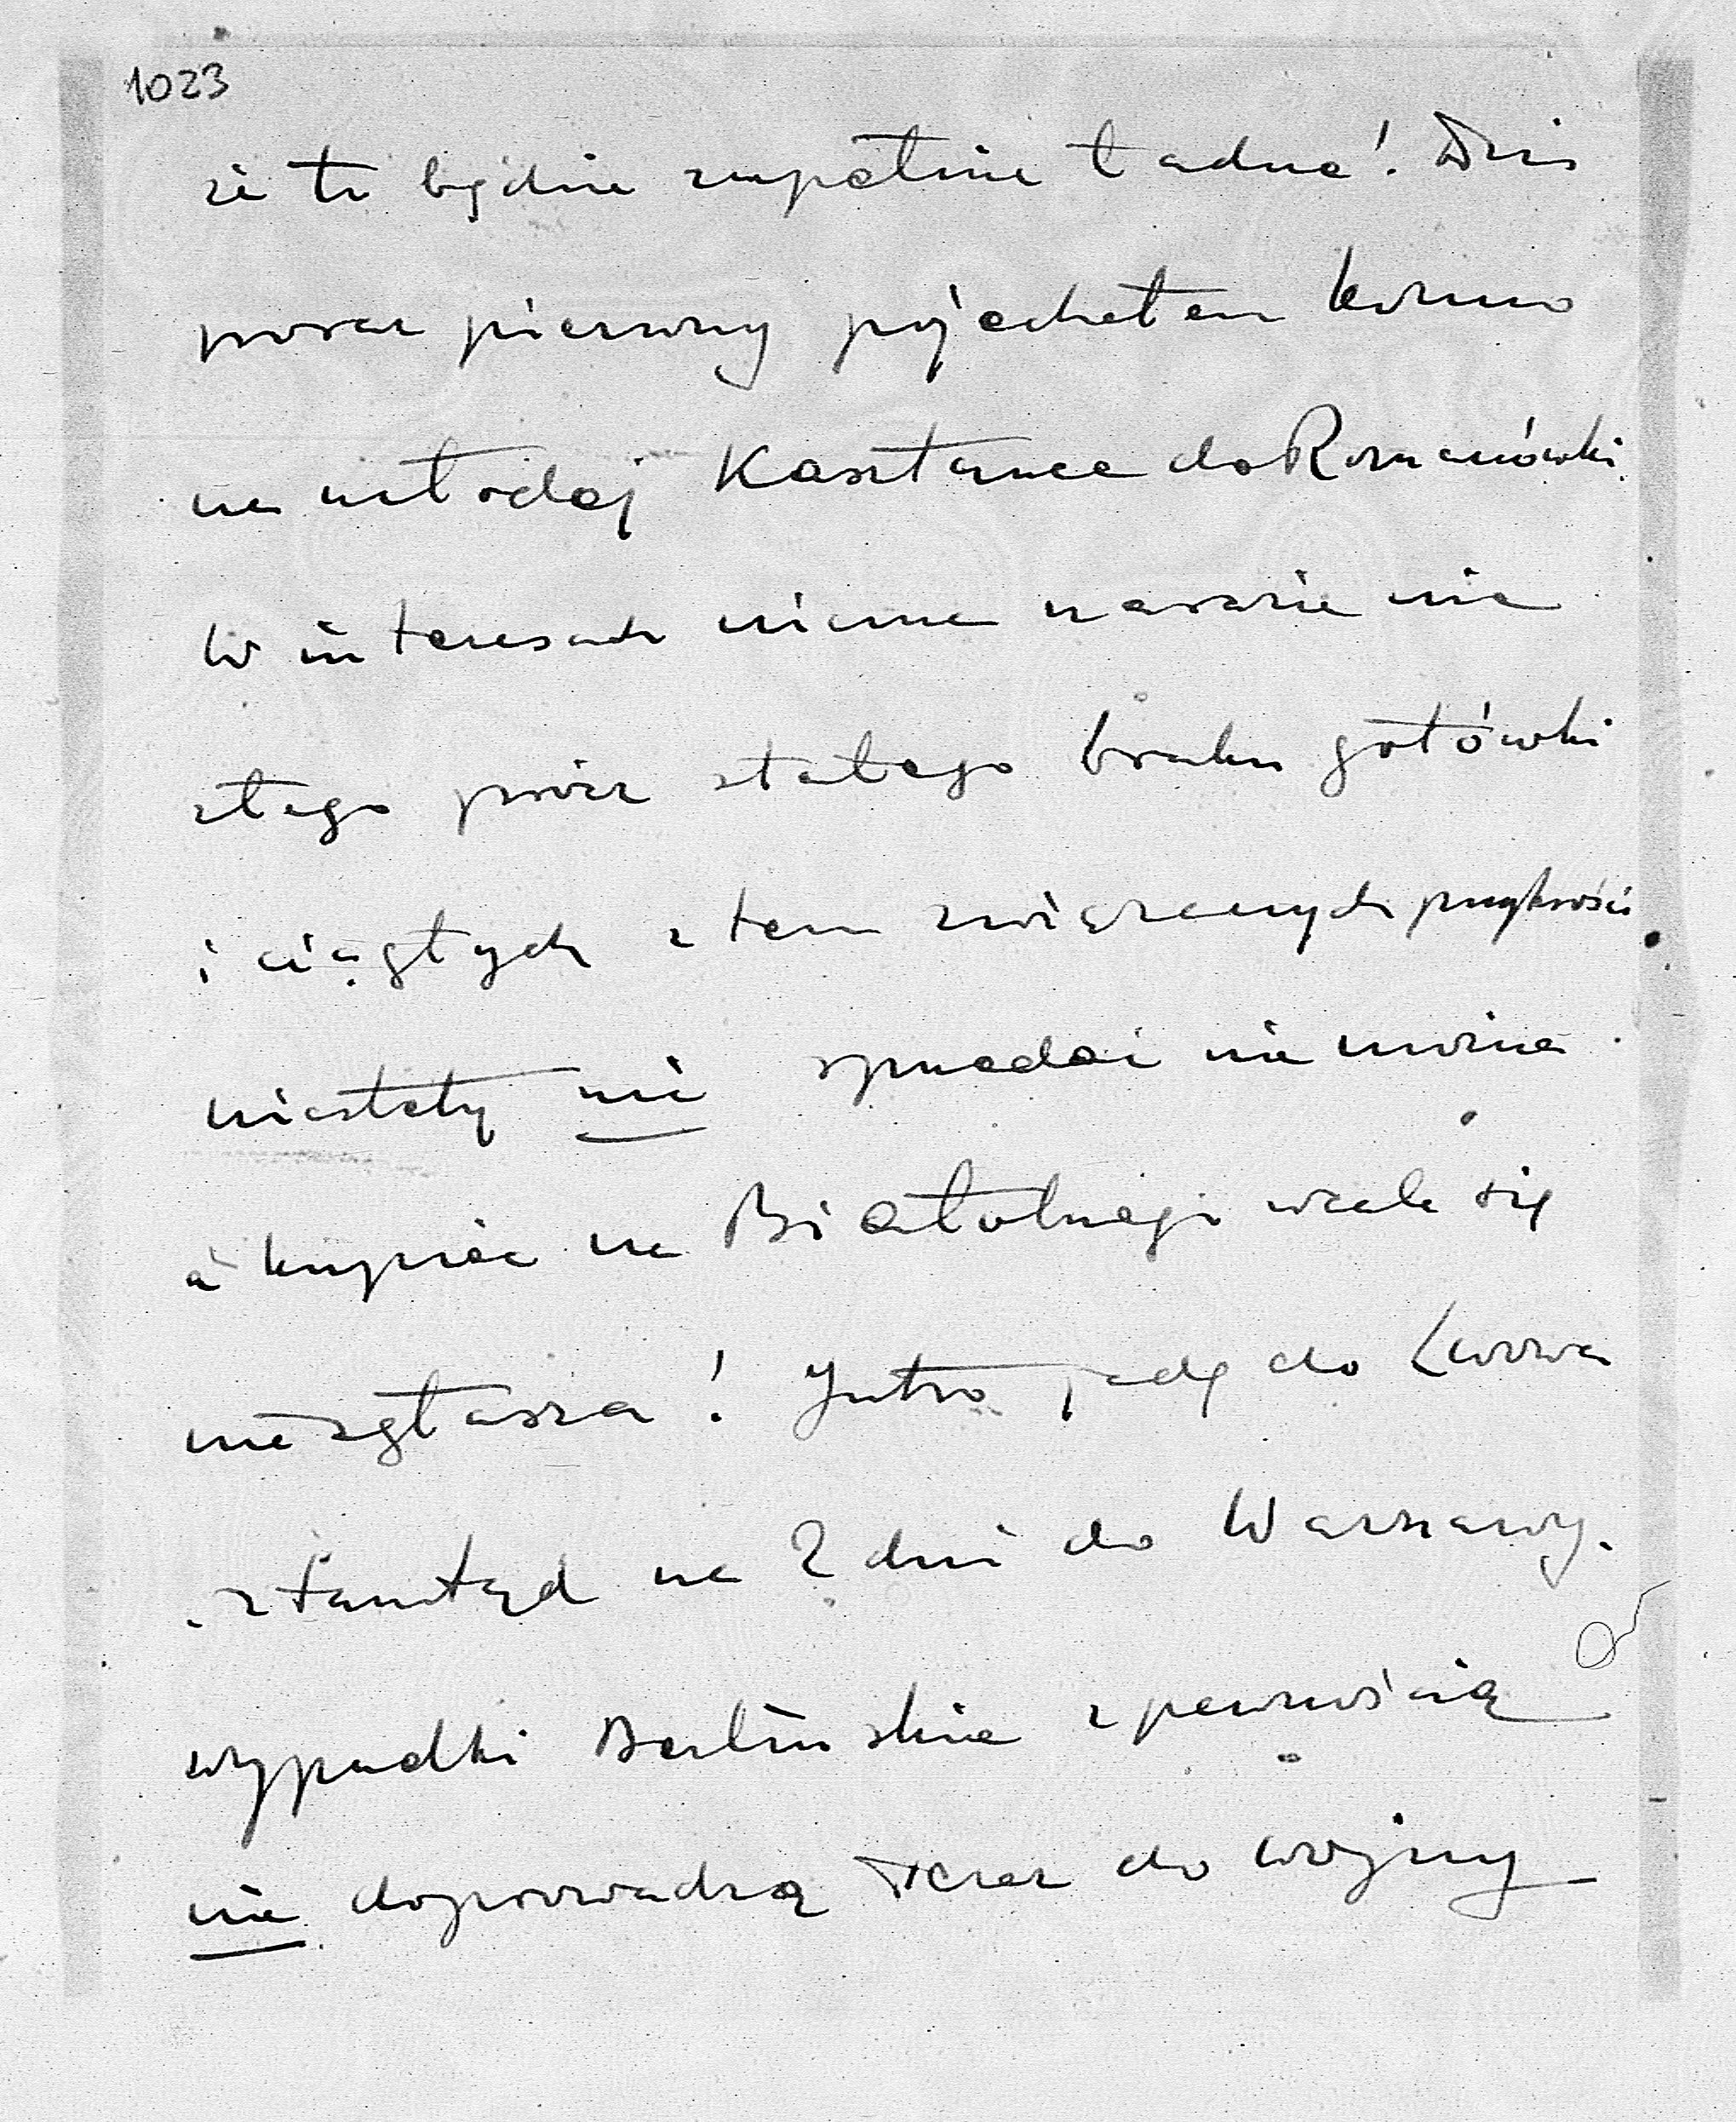 1023
że to będzie zupełnie ładne! Dziś
poraz pierwszy pojechałem konno
na młodej Kasztance do Romanówki.
W interesach niema narazie nic
złego prócz stałego braku gotówki
i ciągłych z tem związanych przykrości
niestety nic sprzedać nie można
a kupiec na Białołukę wcale się
nie zgłasza! Jutro jadę do Lwowa
z tamtąd na 2 dni do Warszawy.
wypadki Berlińskie z pewnością
nie doprowadzą teraz do wojny